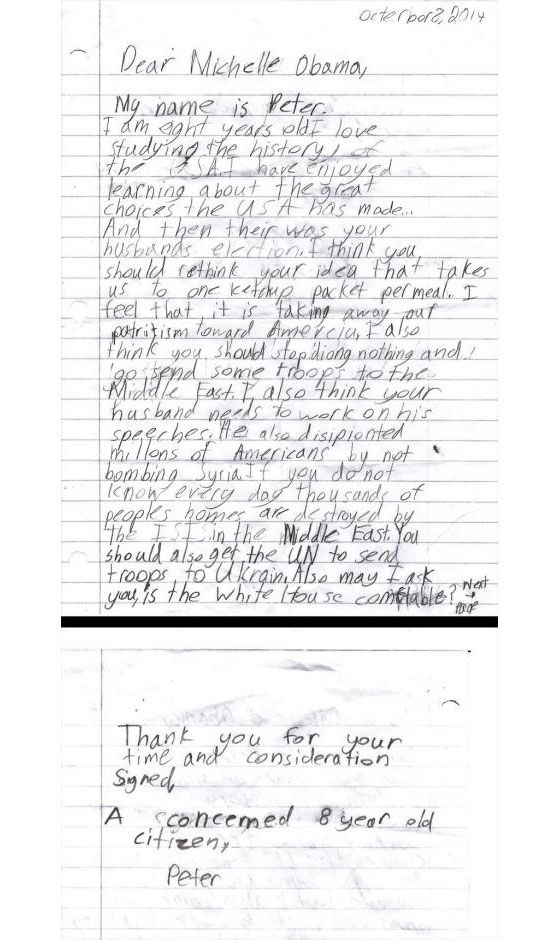 Octerbor 2, 2014
Dear Michelle Obama,
My name is Peter.
I am eght years old I love
studying the history of
the USA. I have enjoyed
learning about the great
choices the USA has made...
And then their was your
husbands election. I think you
should rethink your idea that takes
us to one ketchup packet per meal. I
feel that, it is taking away our
patritism toward Amercia, I also
think you should stop diong nothing and
go send some troops to the
Middle East. I, also think your
husband needs to work on his
speeches. He also disipionted
millons of Americans by not
bombing Syria. If you do not
know every day thousands of
peoples homes are destroyed by
the ISIS in the Middle East. You
should also get the UN to send
troops to Ukrain. Also may I ask
you, is the White House comftable? Next
→
Page
Thank you for your
time and consideration
Signed,
A concerned 8 year old
citizen,
Peter